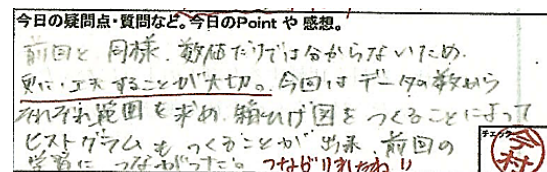 今日の疑問点・質問など。今日のPoint や 感想。
前回と同様、数値だけでは分からないため、
更に工夫することが大切。今回はデータの数から
それぞれ範囲を求め、箱ひげ図をつくることによって
ヒストグラムもつくることが出来、前回の
学習につながった。つながりましたね!!
チェック
今村